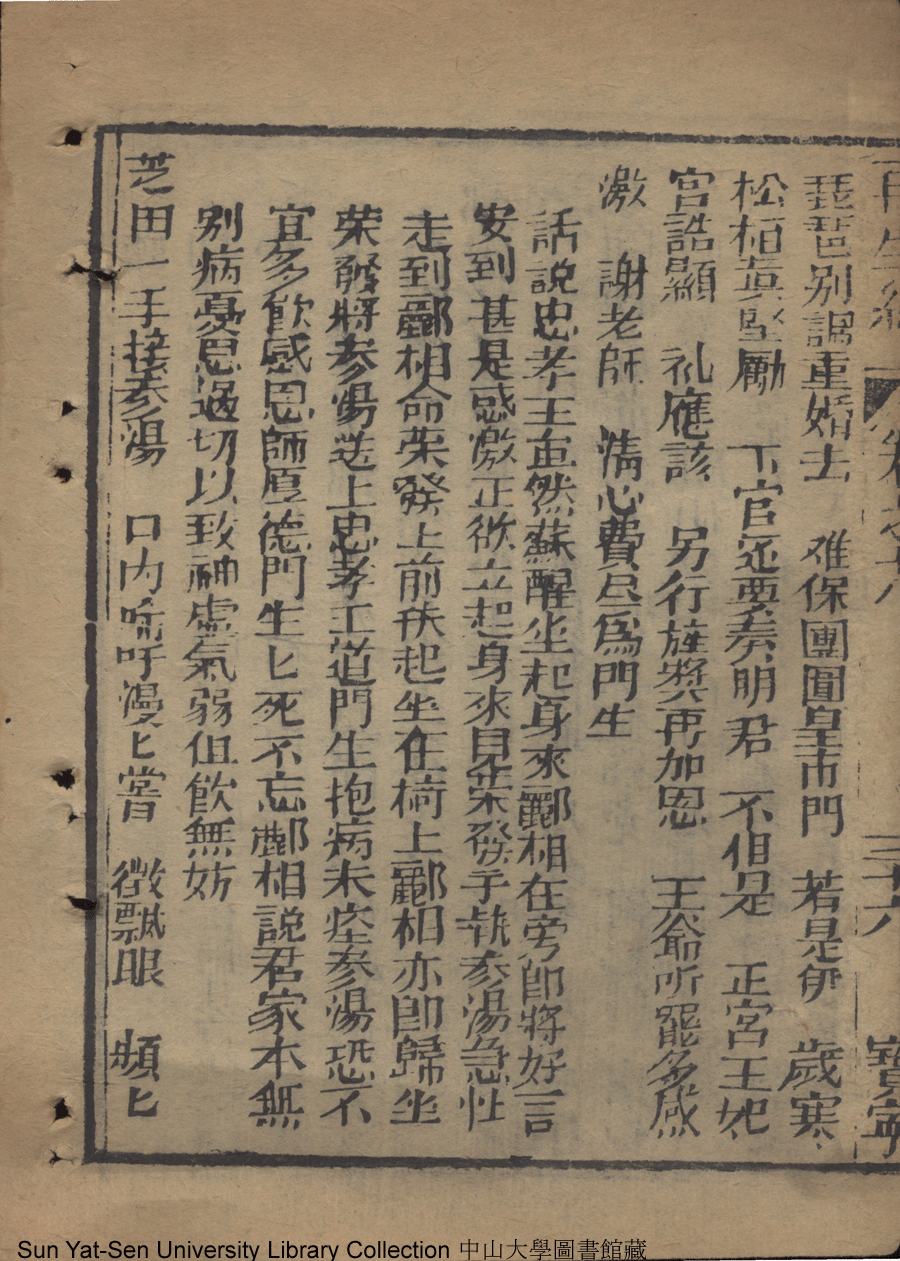 再生緣 卷之十八 三十六 寶寧
琵琶别調重婚去 难保團圓皇市門 若是伊 歲寒
松栢眞堅勵 下官定要奏明君 不但是 正宮王妃
宫誥顯 礼應該 另行旌獎再加恩 王爺所罷多感
激 謝老師 淸心費尽爲門生
話說忠孝王虽然蘇醒坐起身來酈相在旁即將好言
安到甚是感激正欲立起身來見荣發手執参湯急忙
走到酈相命荣發上前扶起坐在椅上酈相亦即歸坐
荣發將参湯送上忠孝王道門生抱病未痊参湯恐不
宜多飲感恩師厚德門生匕死不忘酈相説君家本無
别病憂思過切以致神虚氣弱但飲無妨
芝田一手接参湯 口内 呼漫匕嘗 微飄眼 頻匕
Sun Yat-Sen University Library Collection 中山大學圖書館藏